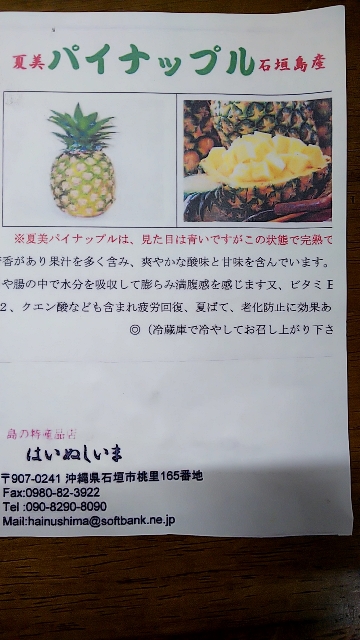 夏美パイナップル石垣島産
※夏美パイナップルは、見た目は青いですがこの状態で完熟で
香があり果汁を多く含み、爽やかな酸味と甘味を含んでいます。
や腸の中で水分を吸収して膨らみ満腹感を感じます又、ビタミ
2、クエン酸なども含まれ疲労回復、夏ばて、老化防止に効果あ
◎（冷蔵庫で冷やしてお召し上がり下さ
島の特産品店
はいぬしいま
〒907-0241 沖縄県石垣市桃里165番地
Fax:0980-82-3922
Tel :090-8290-8090
Mail:hainushima@softbank.ne.jp